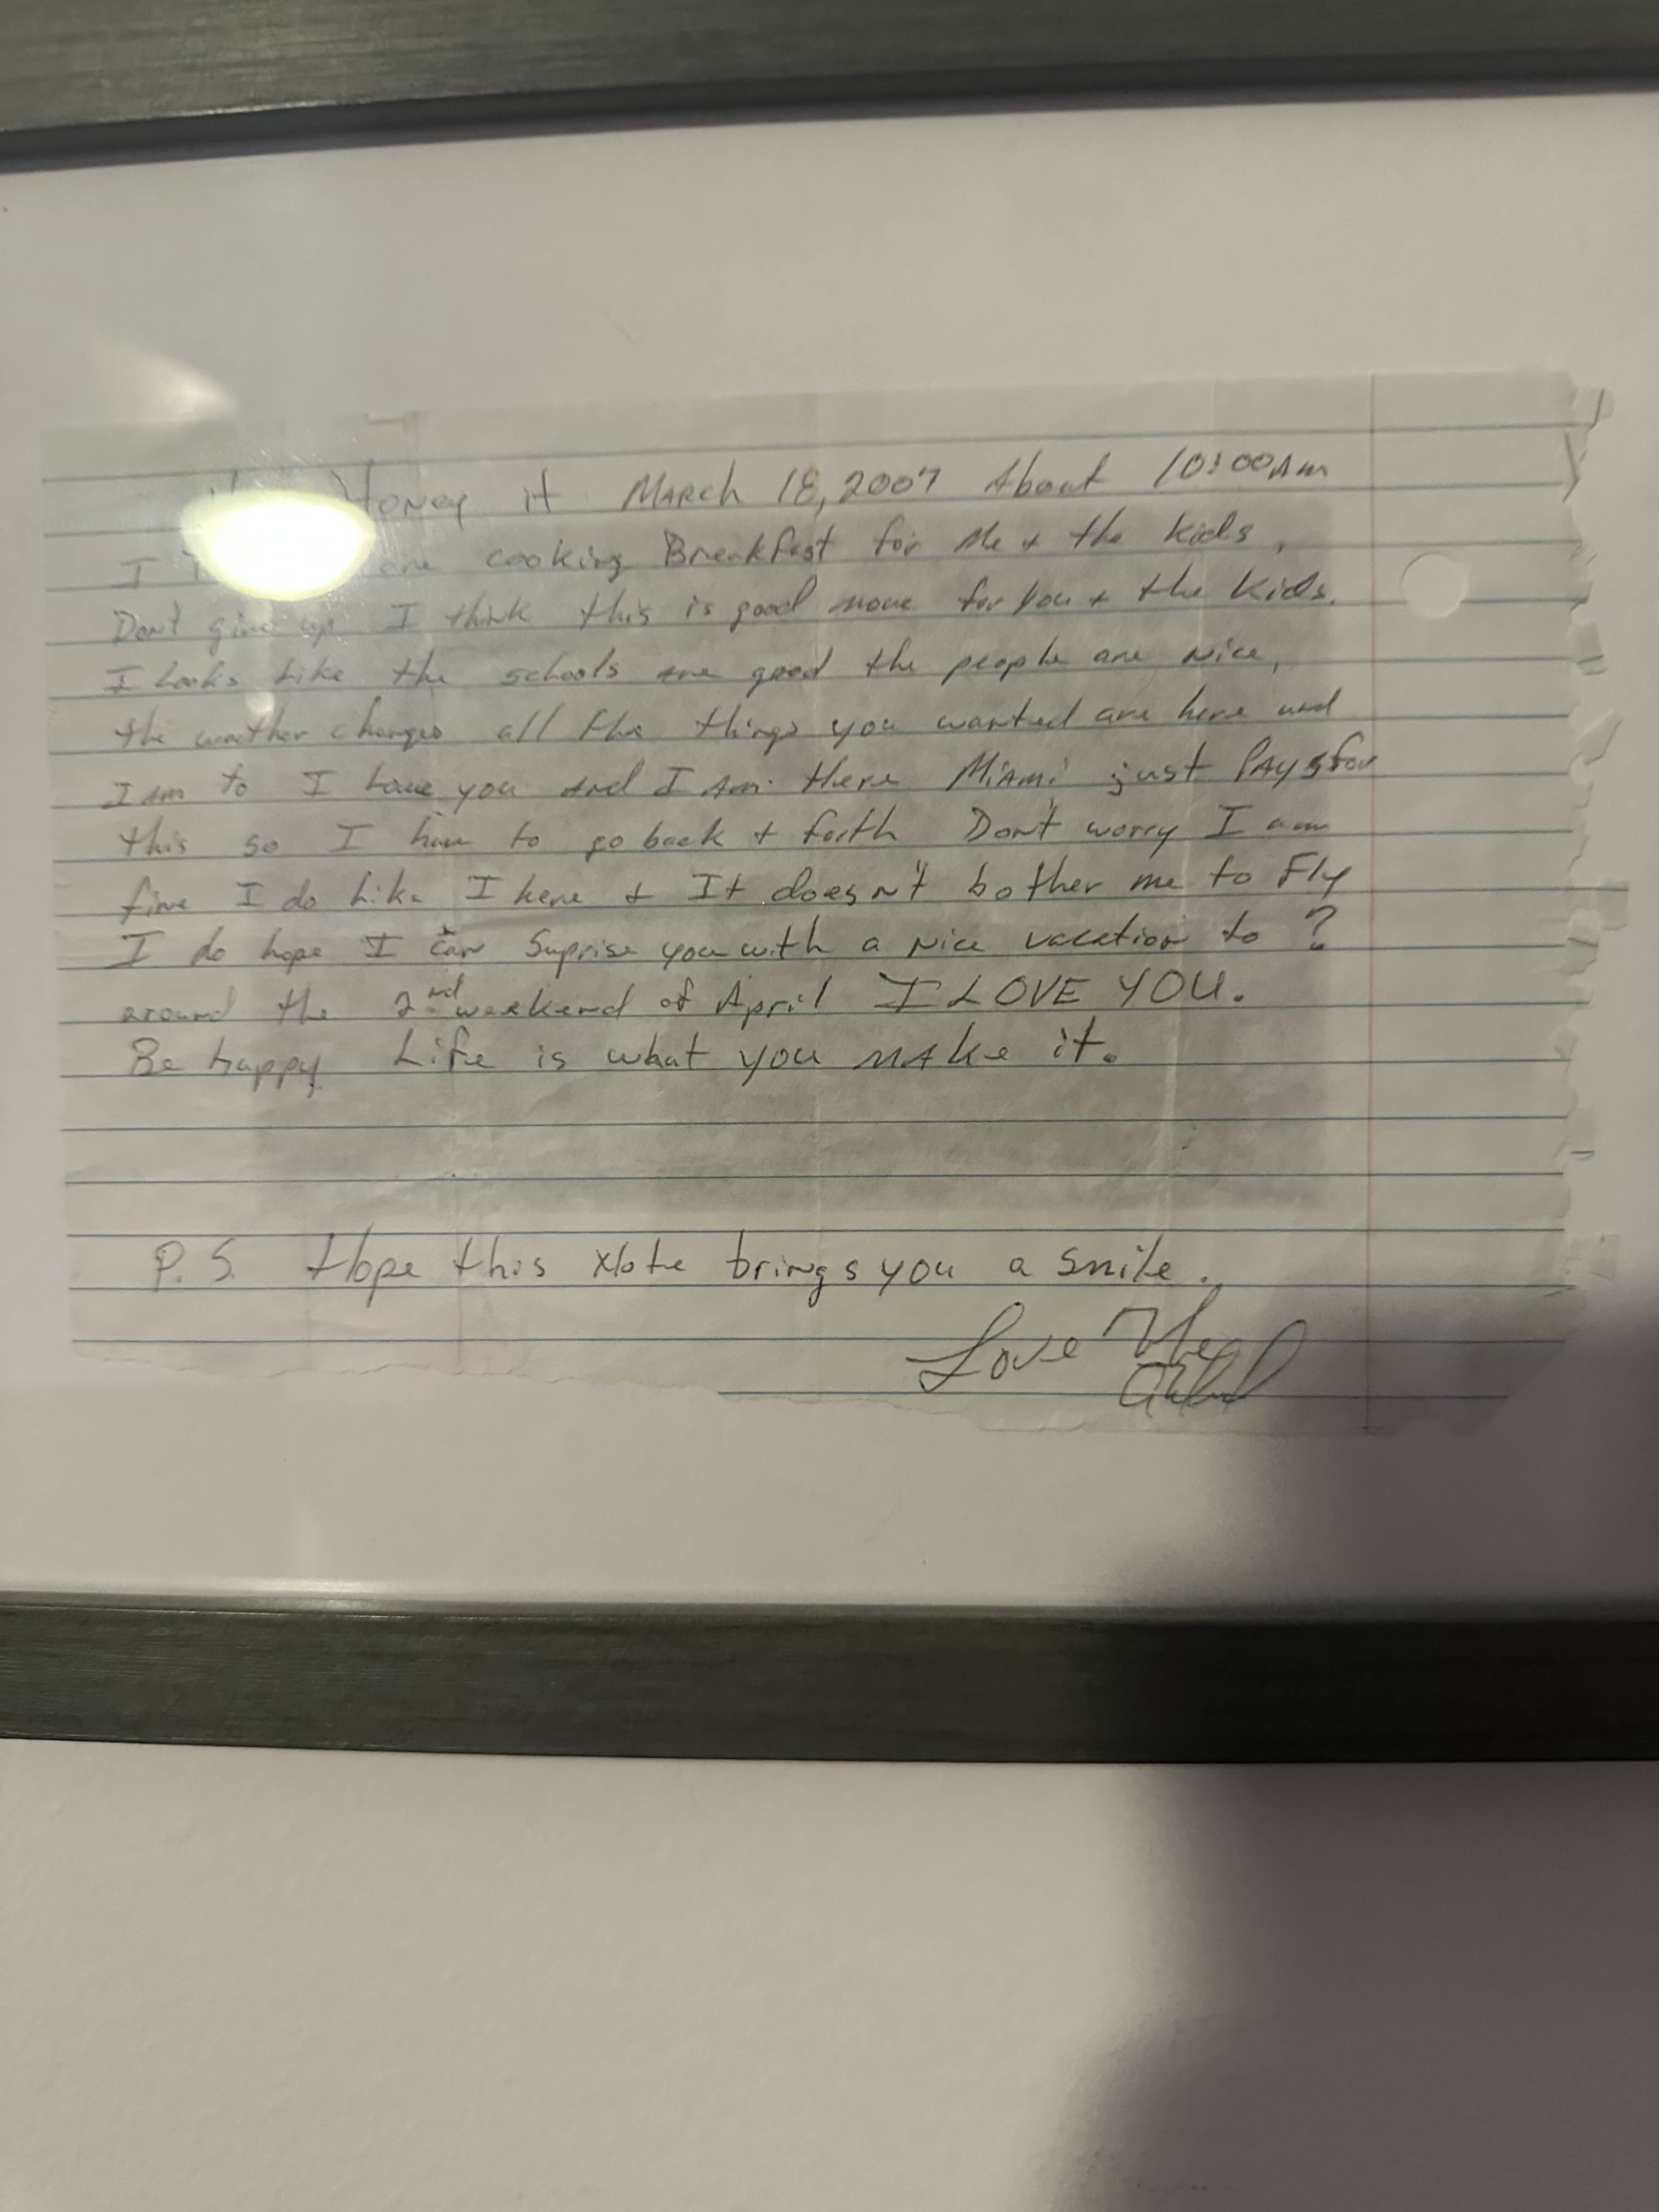 Honey it March 18, 2007 About 10:00 AM
I are cooking Breakfast for Me + the kids,
Don't give up I think this is good move for you + the kids.
I looks like the schools are good the people are nice,
the weather changes all the things you wanted are here and
I am to I love you and I am there Miami just Pays for
this so I have to go back + forth Don't worry I am
fine I do like I here + It doesn't bother me to Fly
I do hope I can Suprise you with a nice vacation to ?
around the 2nd weekend of April I LOVE YOU.
Be happy Life is what you make it.
P.S. Hope this Note brings you a smile.
Love